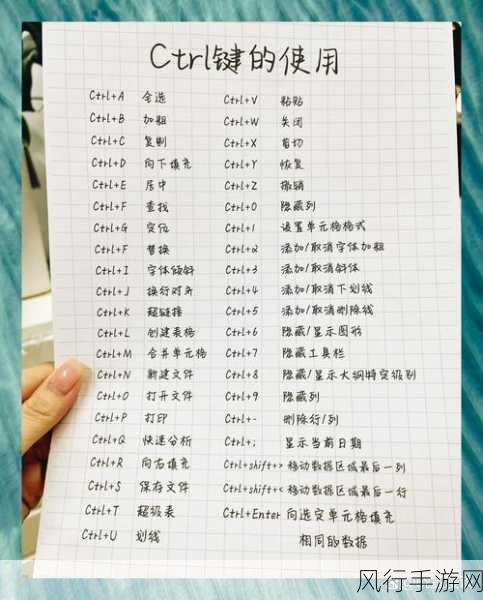 Ctrl键的使用
Ctrl+A 全选
Ctrl+B 加粗
Ctrl+C 复制
Ctrl+D 向下填充
Ctrl+E 居中
Ctrl+F 查找
Ctrl+G 定位
Ctrl+F 替换
Ctrl+I 字体倾斜
Ctrl+J 换行对齐
Ctrl+K 超链接
Ctrl+L 创建表格
Ctrl+M 合并单元格
Ctrl+N 新建文件
Ctrl+O 打开文件
Ctrl+P 打印
Ctrl+Q 快速分析
Ctrl+R 向右填充
Ctrl+S 保存文件
Ctrl+T 超级表
Ctrl+U 划线
Ctrl+V 粘贴
Ctrl+W 关闭
Ctrl+X 剪切
Ctrl+Y 恢复
Ctrl+Z 撤销
Ctrl+0 隐藏列
Ctrl+1 设置单元格格式
Ctrl+2 添加/取消字体加粗
Ctrl+3 添加/取消斜体
Ctrl+4 添加/取消下划线
Ctrl+5 添加/取消删除线
Ctrl+6 隐藏/显示图形
Ctrl+7 隐藏工具栏
Ctrl+8 隐藏/显示大纲特定级别
Ctrl+9 隐藏列
Ctrl+- 删除行/列
Ctrl+; 显示当前日期
Ctrl+shift+> 移动数据区域最后一列
Ctrl+shift+< 移动数据区域最后一行
Ctrl+Enter 向选定单元格填充
相同的数据
风行手游网